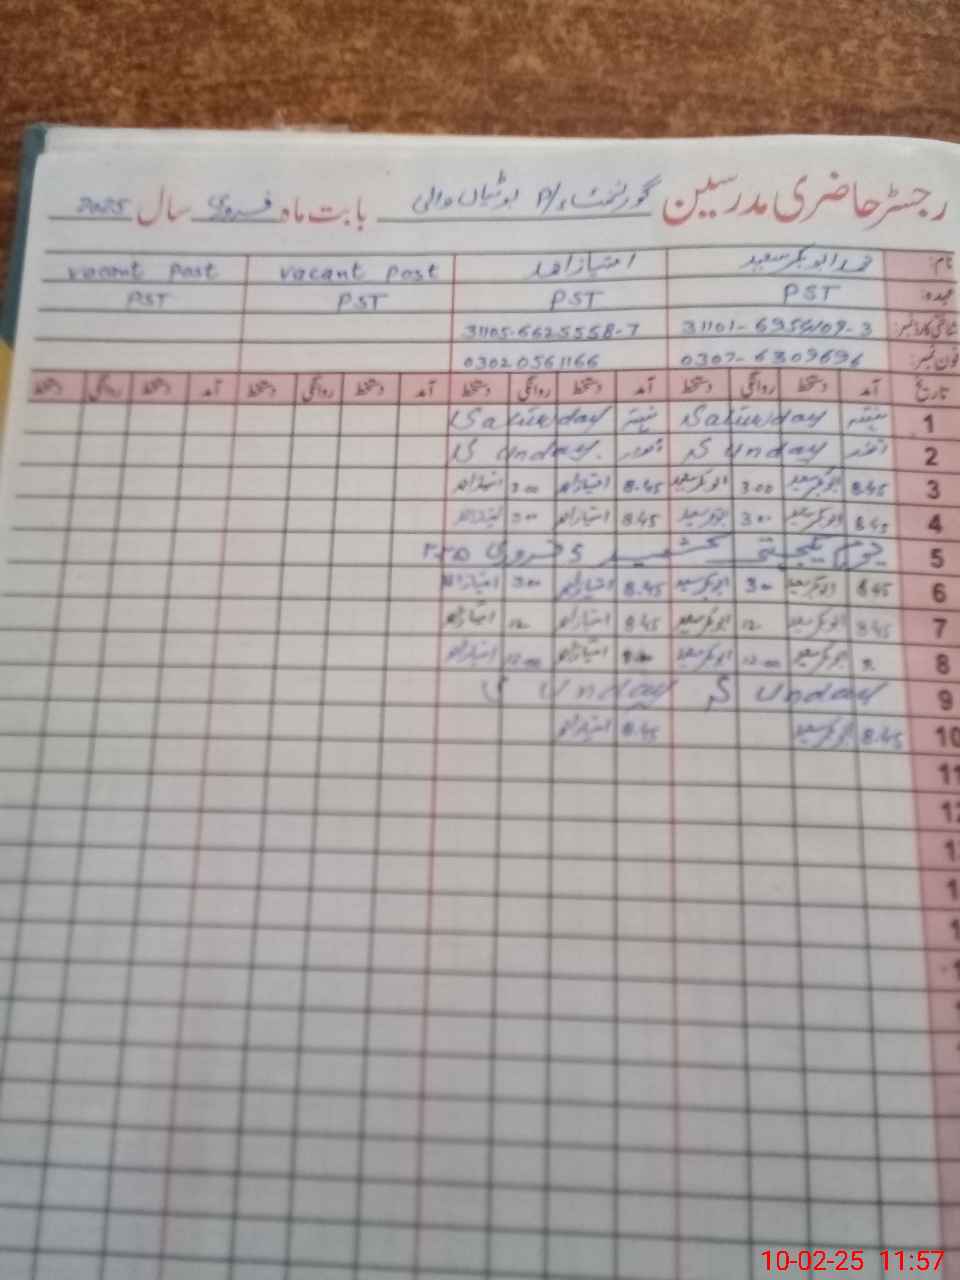 رجسٹر حاضری مدرسین گورنمنٹ P/S بوٹیاں والی بابت ماہ فروری سال 2025
نام: محمد ابوبکر سعید امتیاز احمد vacant Post vacant Post
عہدہ: PST PST PST PST
شناختی کارڈ نمبر: 31105-6625558-7
فون نمبر: 0307-6309696 03020561166
تاریخ آمد دستخط روانگی دستخط آمد دستخط روانگی دستخط آمد دستخط روانگی دستخط آمد دستخط روانگی دستخط
1 ہفتہ Saturday ہفتہ Saturday
2 اتوار Sunday اتوار Sunday
3 8.45 ابوبکر سعید 3.00 ابوبکر سعید 8.45 امتیاز احمد 3.00 امتیاز احمد
4 8.45 ابوبکر سعید 3.00 ابوبکر سعید 8.45 امتیاز احمد 3.00 امتیاز احمد
5 یوم یکجہتی کشمیر 5 فروری
6 8.45 ابوبکر سعید 3.00 ابوبکر سعید 8.45 امتیاز احمد 3.00 امتیاز احمد
7 8.45 ابوبکر سعید 12 ابوبکر سعید 8.45 امتیاز احمد 12 امتیاز احمد
8 ابوبکر سعید 12.00 ابوبکر سعید امتیاز احمد 12.00 امتیاز احمد
9 Sunday Sunday
10 8.45 ابوبکر سعید 8.45 امتیاز احمد
11
12
10-02-25 11:57